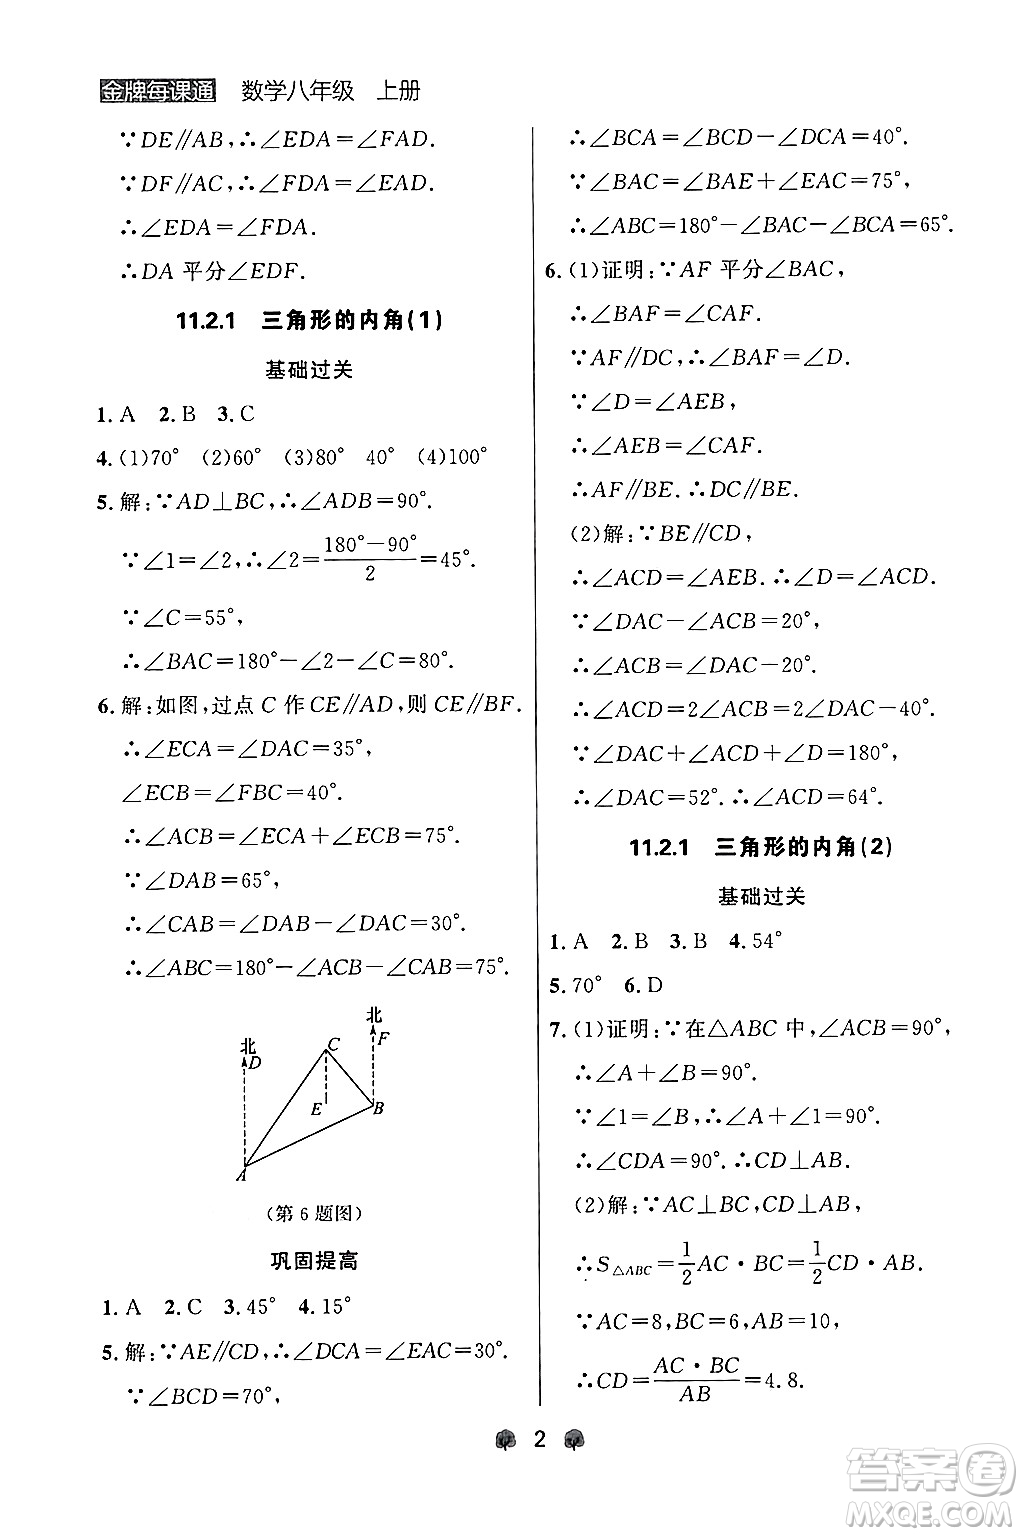 金牌每课通 数学八年级 上册
∵DE∥AB,∴∠EDA=∠FAD.
∵DF∥AC,∴∠FDA=∠EAD.
∴∠EDA=∠FDA.
∴DA 平分∠EDF.
11.2.1 三角形的内角(1)
基础过关
1. A 2. B 3. C
4. (1)70° (2)60° (3)80° 40° (4)100°
5. 解:∵AD⊥BC,∴∠ADB=90°.
∵∠1=∠2,∴∠2=\frac{180°-90°}{2}=45°.
∵∠C=55°,
∴∠BAC=180°-∠2-∠C=80°.
6. 解:如图,过点 C 作 CE∥AD,则 CE∥BF.
∴∠ECA=∠DAC=35°,
∠ECB=∠FBC=40°.
∴∠ACB=∠ECA+∠ECB=75°.
∵∠DAB=65°,
∴∠CAB=∠DAB-∠DAC=30°.
∴∠ABC=180°-∠ACB-∠CAB=75°.
北
北
D
C
F
E
B
A
(第 6 题图)
巩固提高
1. A 2. C 3. 45° 4. 15°
5. 解:∵AE∥CD,∴∠DCA=∠EAC=30°.
∵∠BCD=70°,
∴∠BCA=∠BCD-∠DCA=40°.
∵∠BAC=∠BAE+∠EAC=75°,
∴∠ABC=180°-∠BAC-∠BCA=65°.
6. (1)证明:∵AF 平分∠BAC,
∴∠BAF=∠CAF.
∵AF∥DC,∴∠BAF=∠D.
∵∠D=∠AEB,
∴∠AEB=∠CAF.
∴AF∥BE.∴DC∥BE.
(2)解:∵BE∥CD,
∴∠ACD=∠AEB.∴∠D=∠ACD.
∵∠DAC-∠ACB=20°,
∴∠ACB=∠DAC-20°.
∴∠ACD=2∠ACB=2∠DAC-40°.
∵∠DAC+∠ACD+∠D=180°,
∴∠DAC=52°.∴∠ACD=64°.
11.2.1 三角形的内角(2)
基础过关
1. A 2. B 3. B 4. 54°
5. 70° 6. D
7. (1)证明:∵在△ABC 中,∠ACB=90°,
∴∠A+∠B=90°.
∵∠1=∠B,∴∠A+∠1=90°.
∴∠CDA=90°.∴CD⊥AB.
(2)解:∵AC⊥BC,CD⊥AB,
∴S△ABC=\frac{1}{2}AC·BC=\frac{1}{2}CD·AB.
∵AC=8,BC=6,AB=10,
∴CD=\frac{AC·BC}{AB}=4.8.
2
答案圈
MXQE.COM